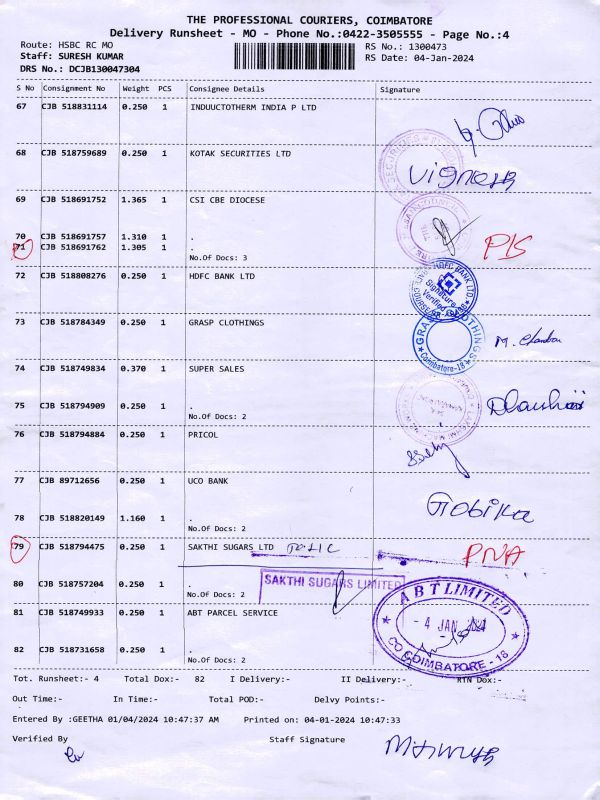 THE PROFESSIONAL COURIERS, COIMBATORE
Delivery Runsheet - MO - Phone No.:0422-3505555 - Page No.:4
Route: HSBC RC MO
RS No.: 1300473
Staff: SURESH KUMAR
RS Date: 04-Jan-2024
DRS No.: DCJB130047304
S No Consignment No Weight PCS Consignee Details Signature
67 CJB 518831114 0.250 1 INDUUCTOTHERM INDIA P LTD
68 CJB 518759689 0.250 1 KOTAK SECURITIES LTD
Vignesh
69 CJB 518691752 1.365 1 CSI CBE DIOCESE
70 CJB 518691757 1.310 1 .
71 CJB 518691762 1.305 1 .
No.Of Docs: 3
72 CJB 518808276 0.250 1 HDFC BANK LTD
HDFC BANK LTD
Signature Verified
73 CJB 518784349 0.250 1 GRASP CLOTHINGS
Coimbatore-18
74 CJB 518749834 0.370 1 SUPER SALES
75 CJB 518794909 0.250 1 .
No.Of Docs: 2
76 CJB 518794884 0.250 1 PRICOL
77 CJB 89712656 0.250 1 UCO BANK
Gobika
78 CJB 518820149 1.160 1 .
No.Of Docs: 2
79 CJB 518794475 0.250 1 SAKTHI SUGARS LTD
PNA
80 CJB 518757204 0.250 1 .
SAKTHI SUGARS LIMITED
No.Of Docs: 2
81 CJB 518749933 0.250 1 ABT PARCEL SERVICE
ABT LIMITED
- 4 JAN 2024
COIMBATORE - 18
82 CJB 518731658 0.250 1 .
No.Of Docs: 2
Tot. Runsheet:- 4 Total Dox:- 82 I Delivery:- II Delivery:- RTN Dox:-
Out Time:- In Time:- Total POD:- Delvy Points:-
Entered By :GEETHA 01/04/2024 10:47:37 AM Printed on: 04-01-2024 10:47:33
Verified By Staff Signature